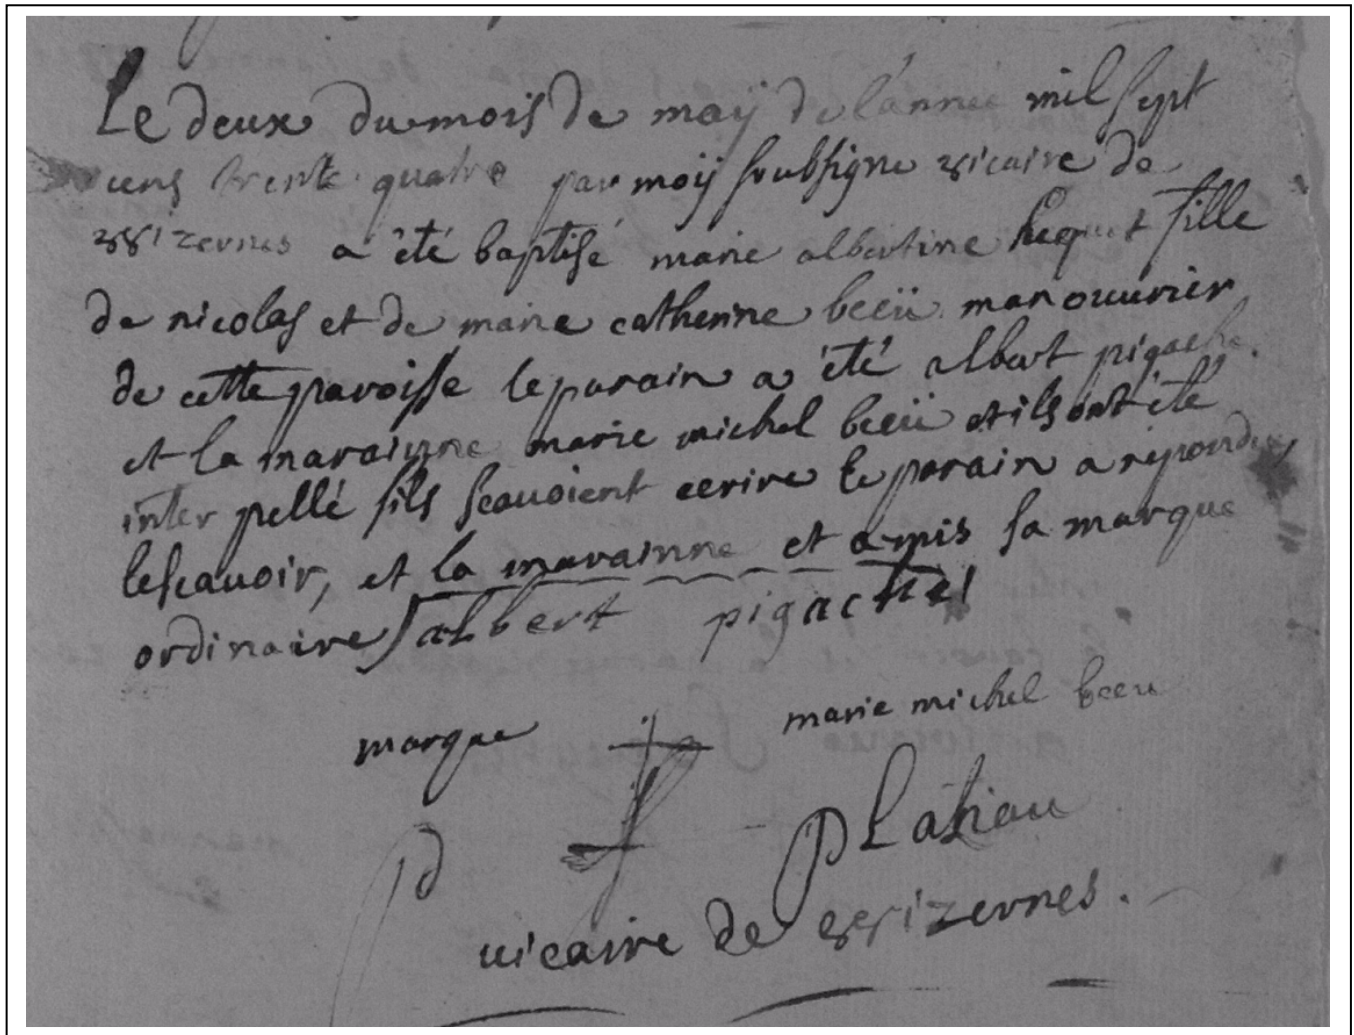 Le deux du mois de maÿ de l'année mil sept
cens trente quatre par moÿ soubsigne vicaire de
wizernes a été baptisé marie albertine hequet fille
de nicolas et de marie catherine beeü manouurier
de cette paroisse le parain a été albert pigache
et la marainne marie michel beeü et ils ont été
inter pellé sils scauoient ecrire le parain a repondu
le scauoir, et la marainne et a mis sa marque
ordinaire albert pigache
marque marie michel beeu
vicaire de wizernes.